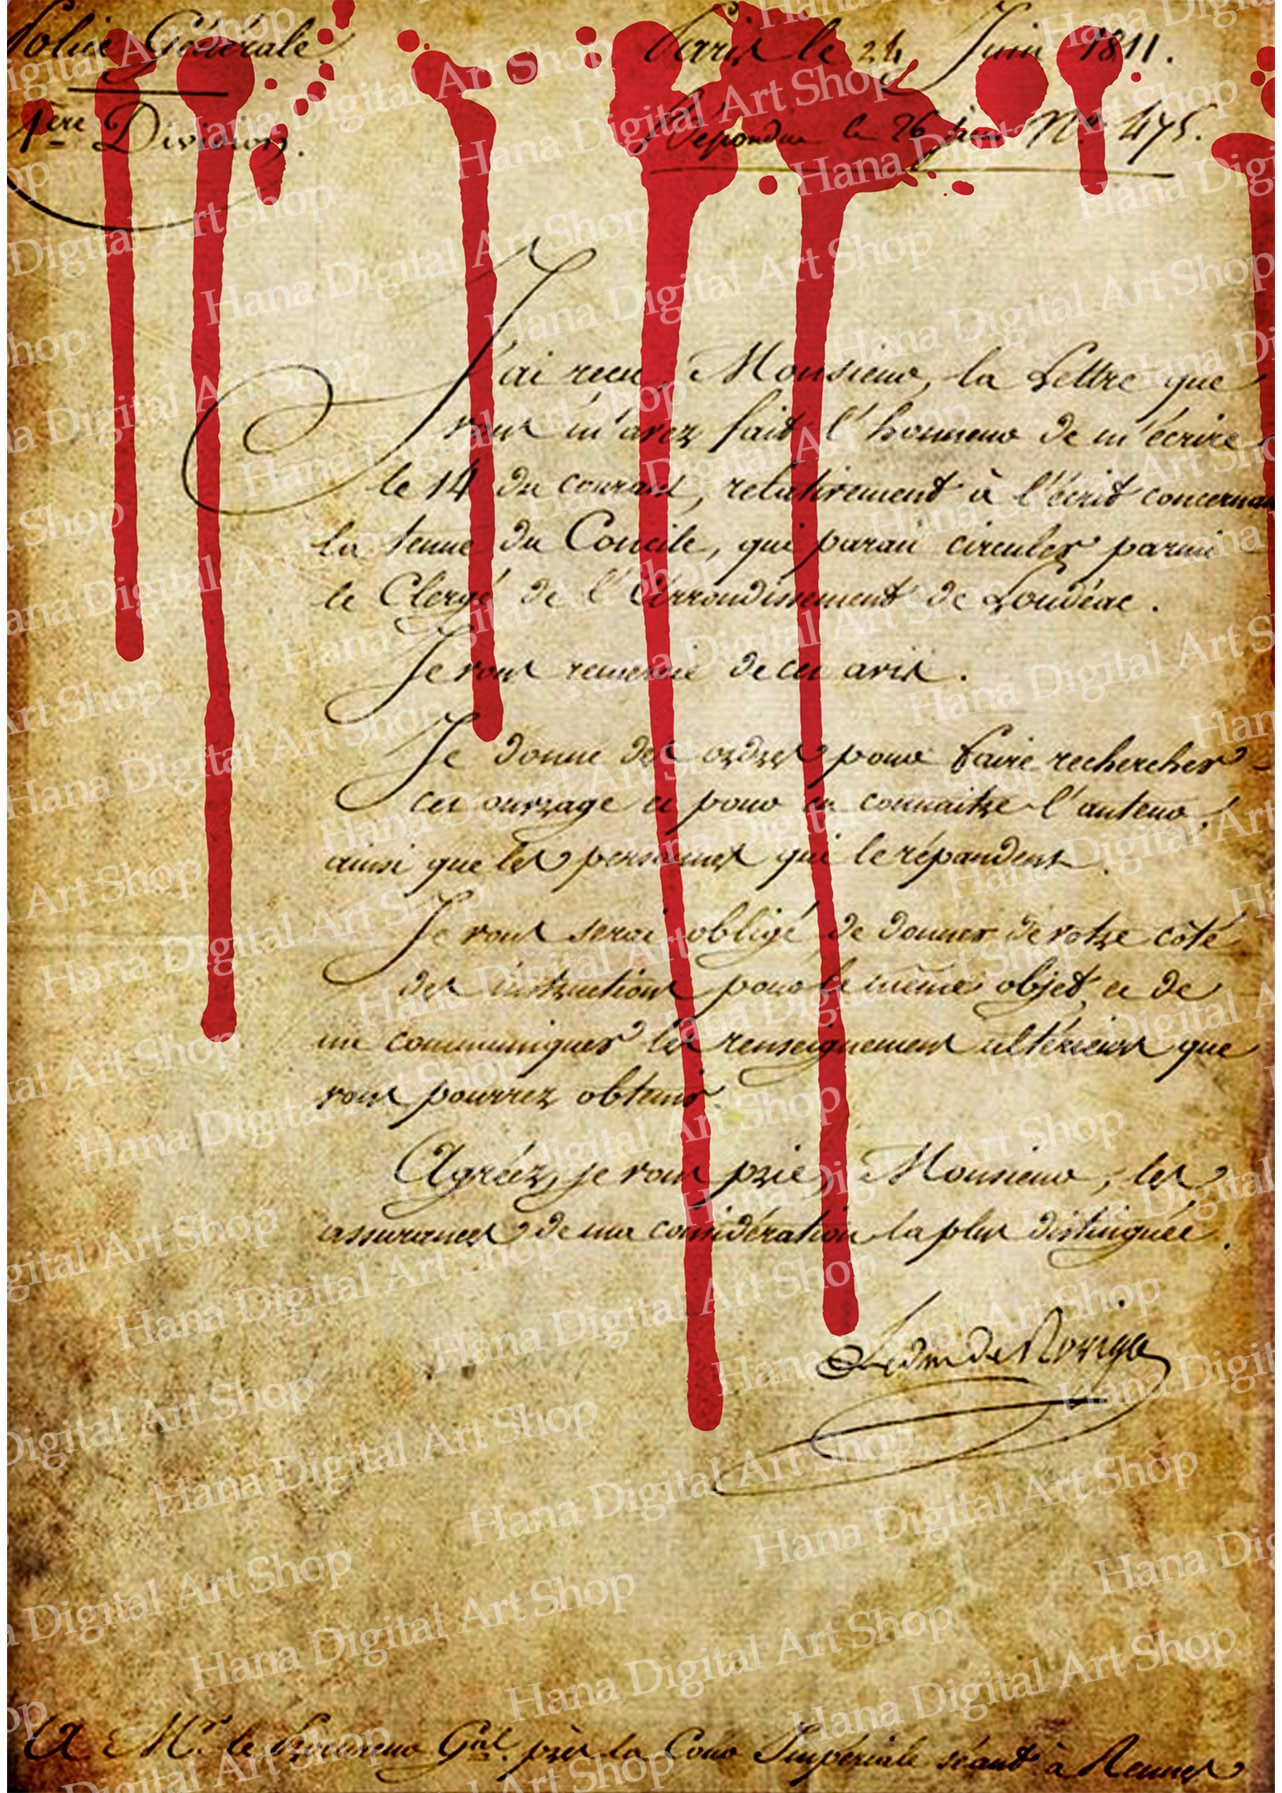 Police Générale.
1ère Division.
Paris le 24 Juin 1811.
Répondue le 26 juin Nº 475.
J'ai reçu, Monsieur, la Lettre que
vous m'avez fait l'honneur de m'écrire
le 14 du courant, relativement à l'écrit concernant
la tenue du Concile, qui parait circuler parmi
le Clergé de l'Arrondissement de Loudéac.
Je vous remercie de cet avis.
Je donne des ordres pour faire rechercher
cet ouvrage et pour en connaitre l'auteur,
ainsi que les personnes qui le répandent.
Je vous serai obligé de donner de votre côté
des instructions pour le même objet, et de
me communiquer les renseignements ultérieurs que
vous pourrez obtenir.
Agréez, je vous prie, Monsieur, les
assurances de ma considération la plus distinguée.
A Mr. le Procureur Gal. près la Cour Impériale séant à Rennes
Hana Digital Art Shop